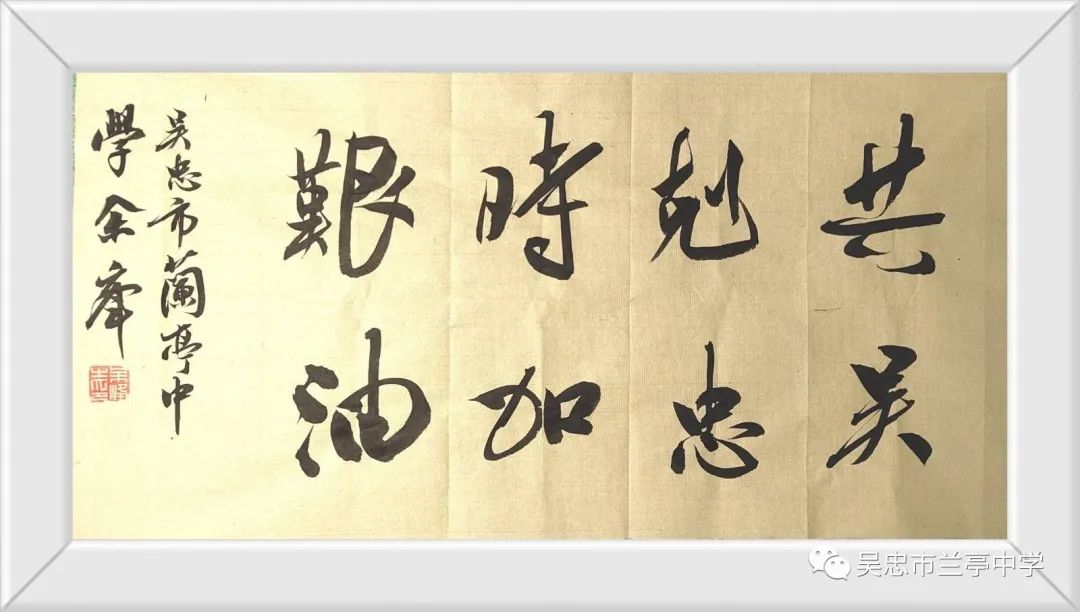 共剋時艱
吴忠加油
吴忠市蘭亭中
學余峯
吴忠市兰亭中学